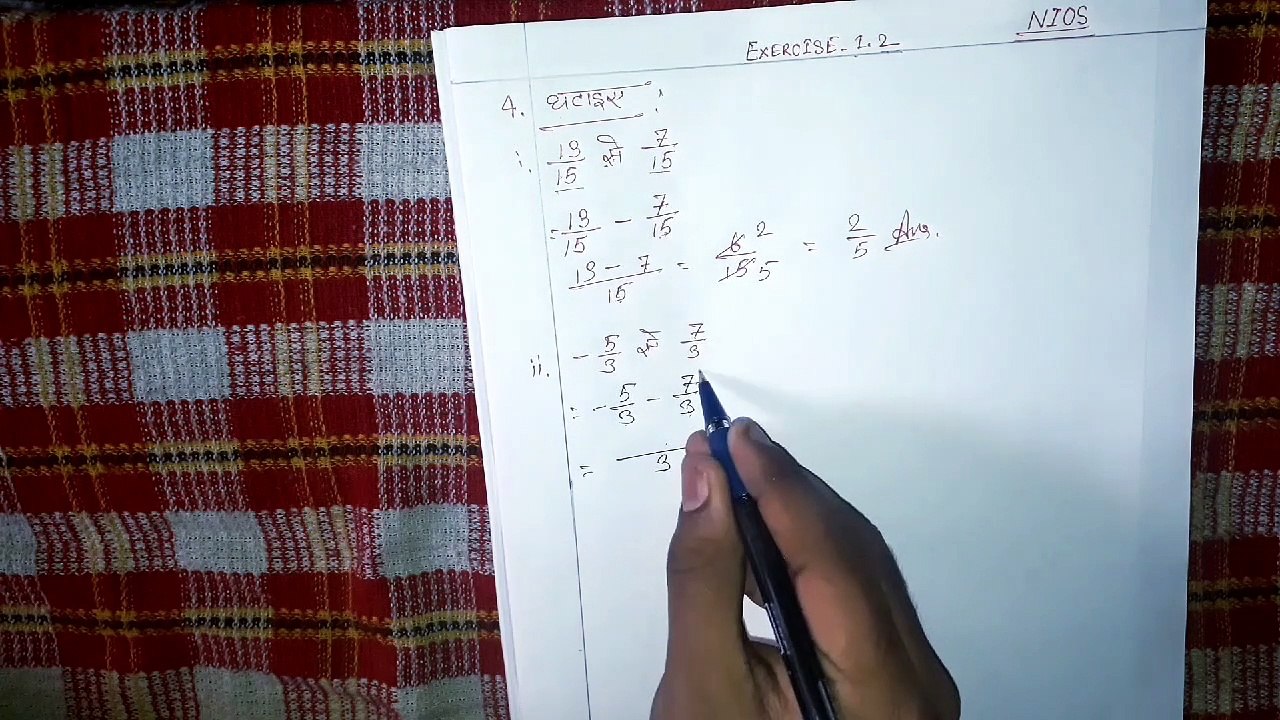 NIOS
EXERCISE-1.2
4. घटाइए :
i. 13/15 से 7/15
= 13/15 - 7/15
13-7/15 = 6/15 2 5 = 2/5 Ans.
ii. -5/3 से 7/3
= -5/3 - 7/3
= /3